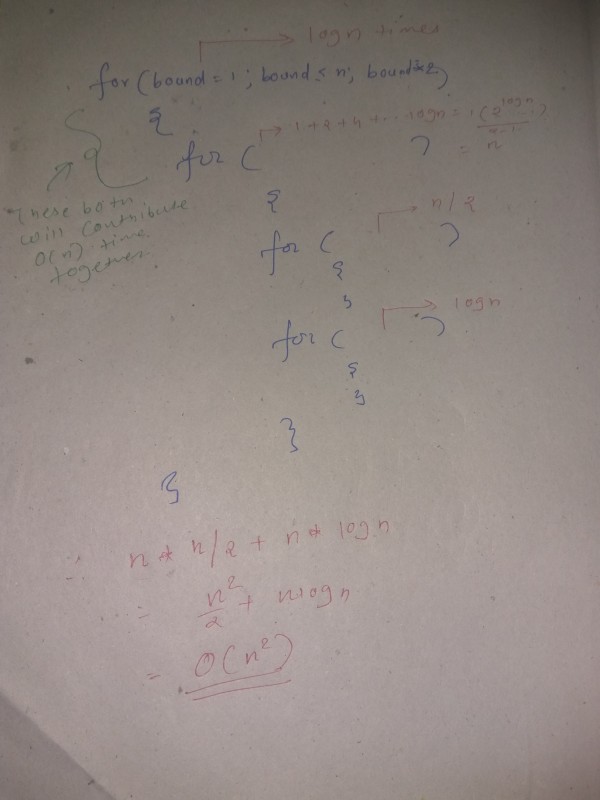 → logn times
for (bound = 1 ; bound ≤ n; bound*2)
{
→ 1 + 2 + 4 + ... logn = 1 (2^logn
for ( ) = n
These both
will contribute
O(n) time
together.
{
→ n/2
for ( )
{
}
→ logn
for ( )
{
}
}
}
∴ n * n/2 + n * logn
= n²/2 + nlogn
= O(n²)